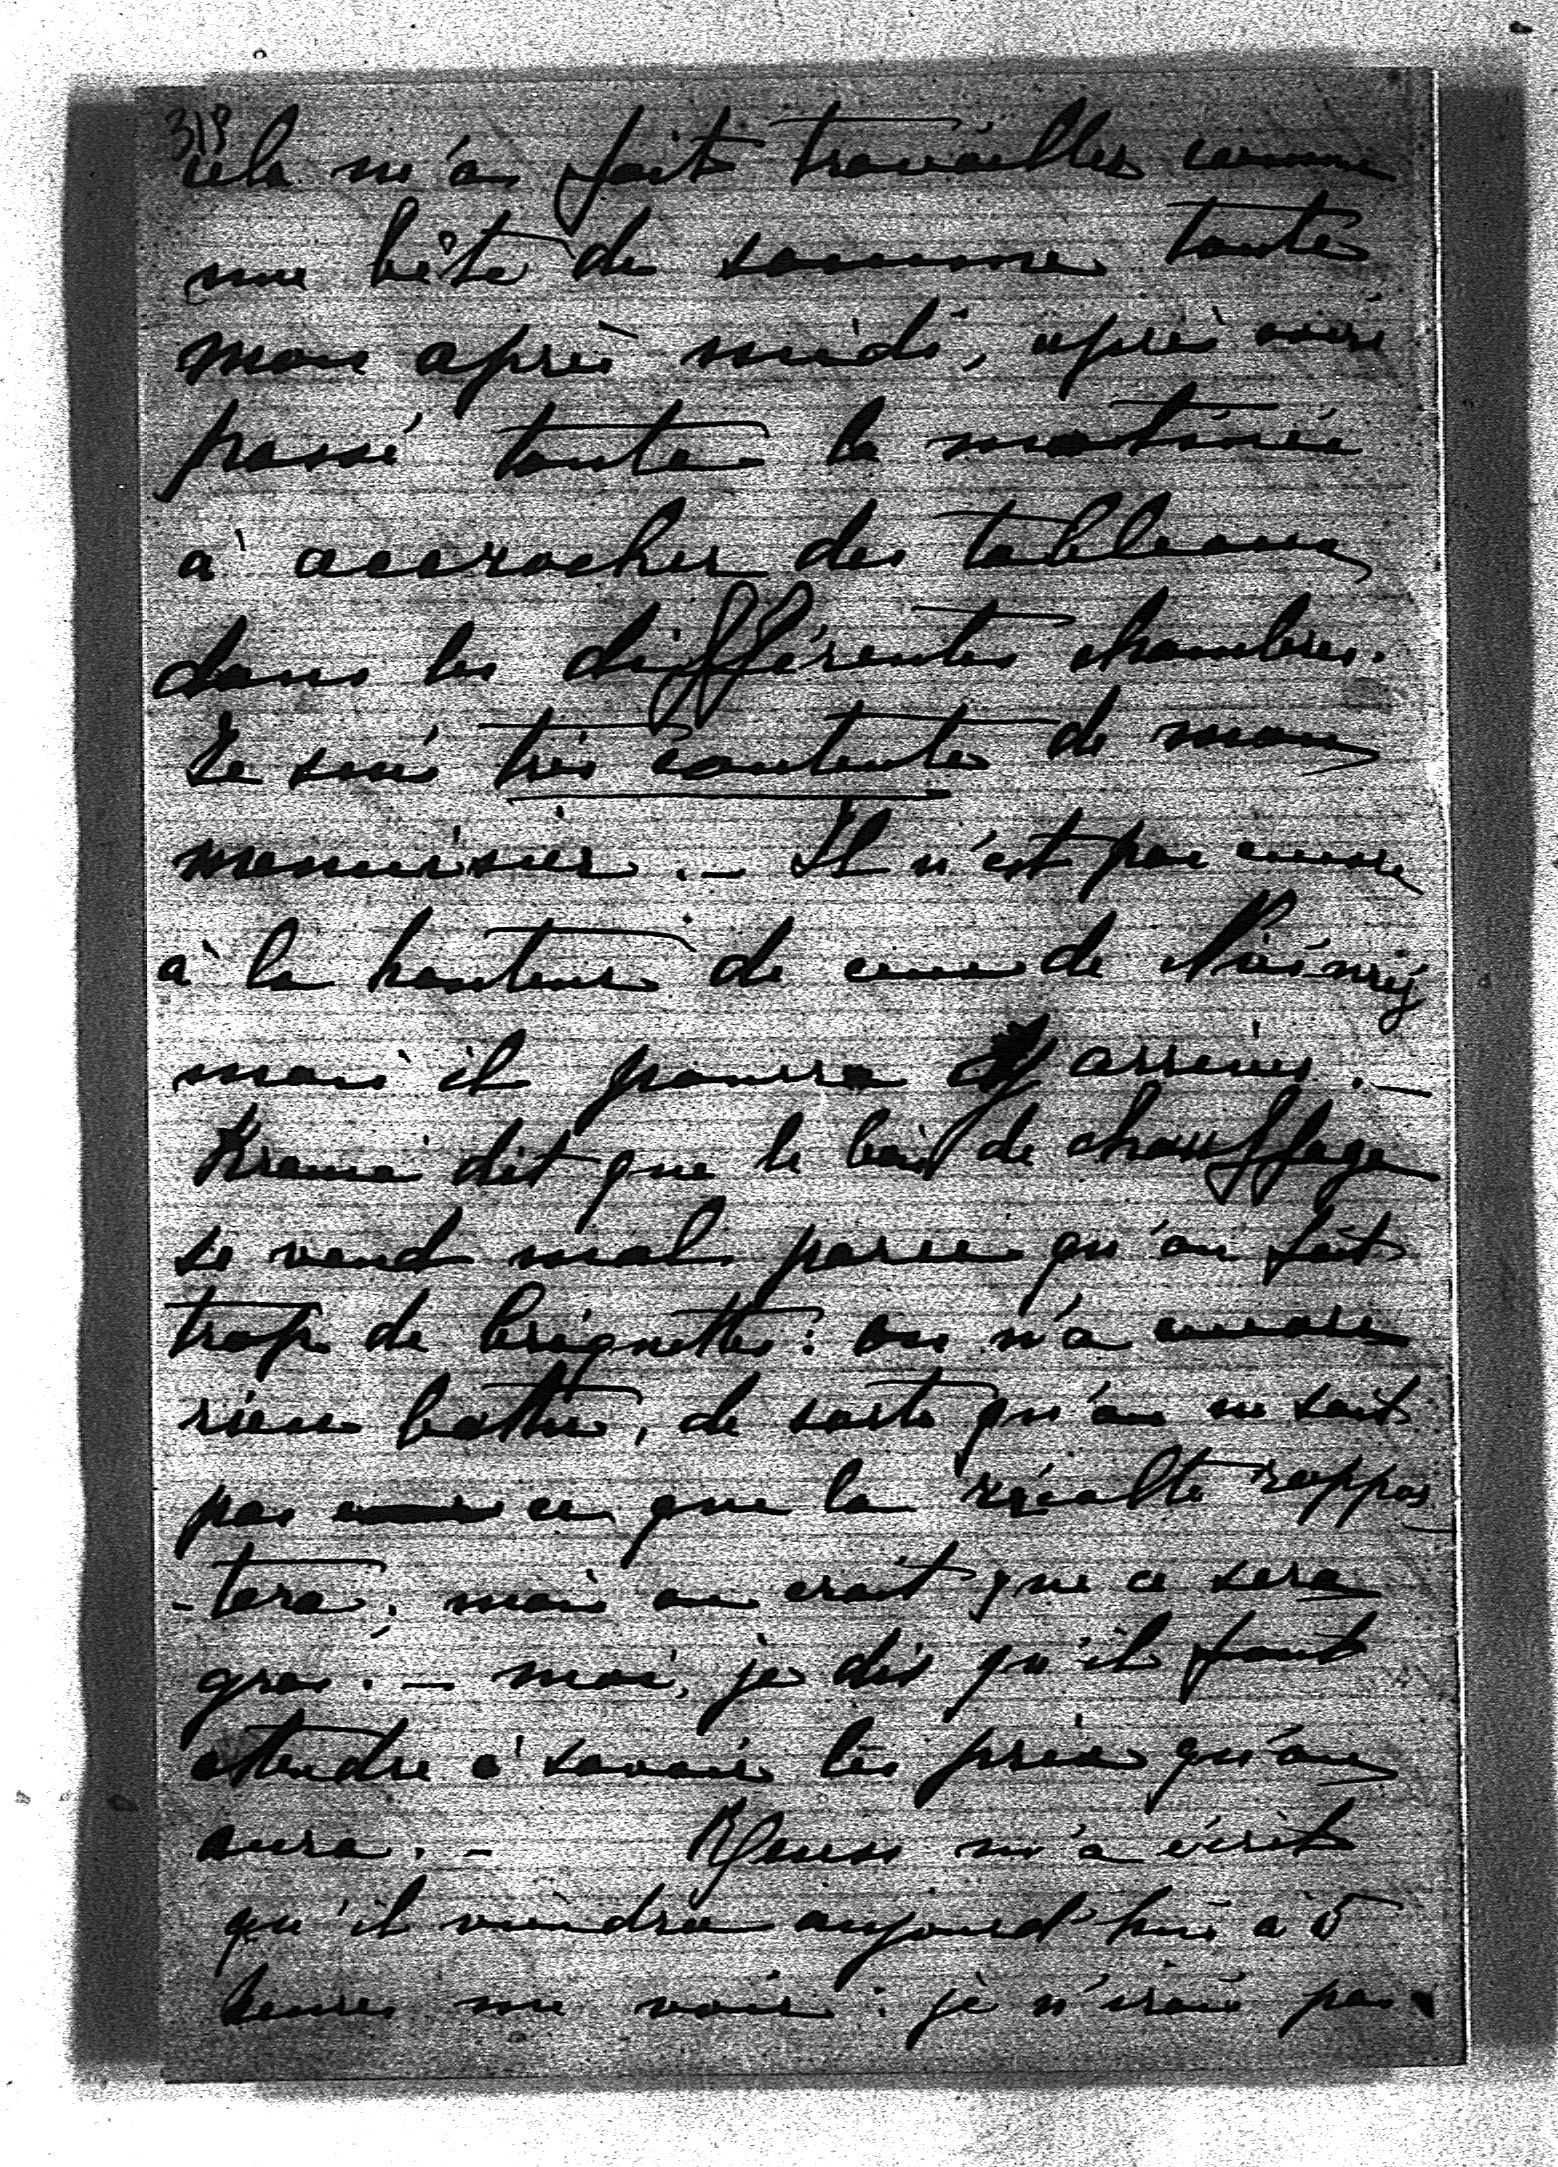 319
cela m'a fait travailler comme
une bête de somme toute
mon après midi, après avoir
passé toute la matinée
à accrocher des tableaux
dans les différentes chambres.
Je suis très contente de mon
menuisier. - Il n'est pas encore
à la hauteur de ceux de
mais il pourra y arriver. -
dit que le bois de chauffage
se vend mal parce qu'on fait
trop de briquettes: on n'a encore
rien battu, de sorte qu'on ne sait
pas ce que la récolte rappor
-tera: mais on croit que ce sera
gros. - moi, je dis qu'il faut
attendre à savoir les prix qu'on
aura. - m'a écrit
qu'il viendra aujourd'hui à 5
heures me voir: je n'irai pas